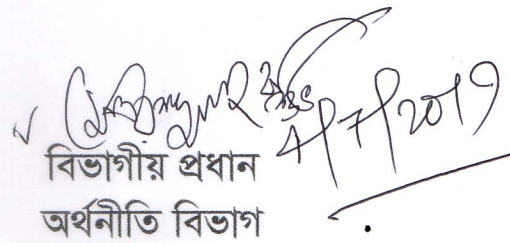 4/7/2019
বিভাগীয় প্রধান
অর্থনীতি বিভাগ